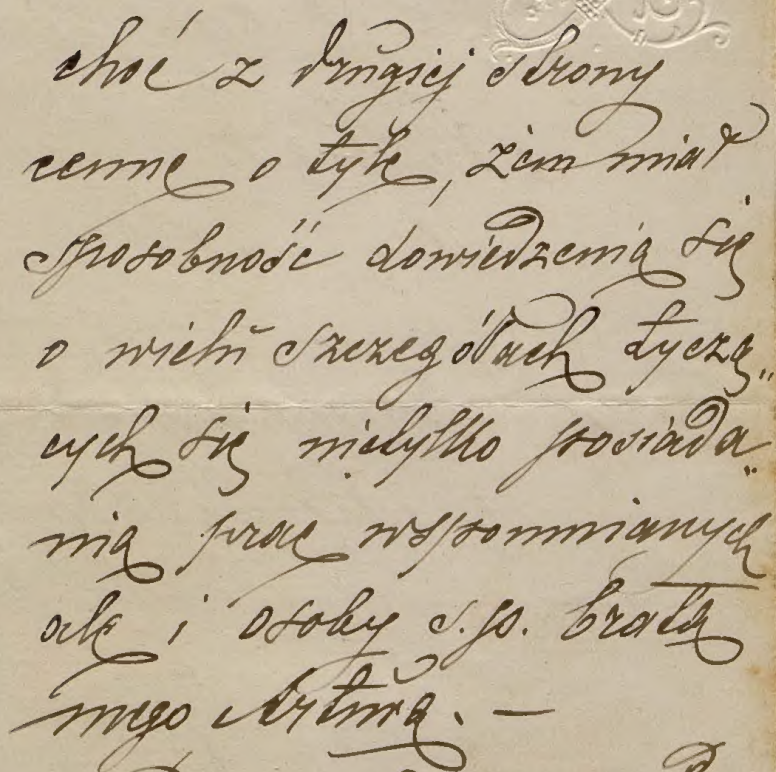 choć z drugiej strony
cenne o tyle, żem miał
sposobność dowiedzenia się
o wielu szczegółach tyczą„
cych się nietylko posiada„
nia prac wspomnianych
ale i osoby ś.p. brata
mego Artura. —